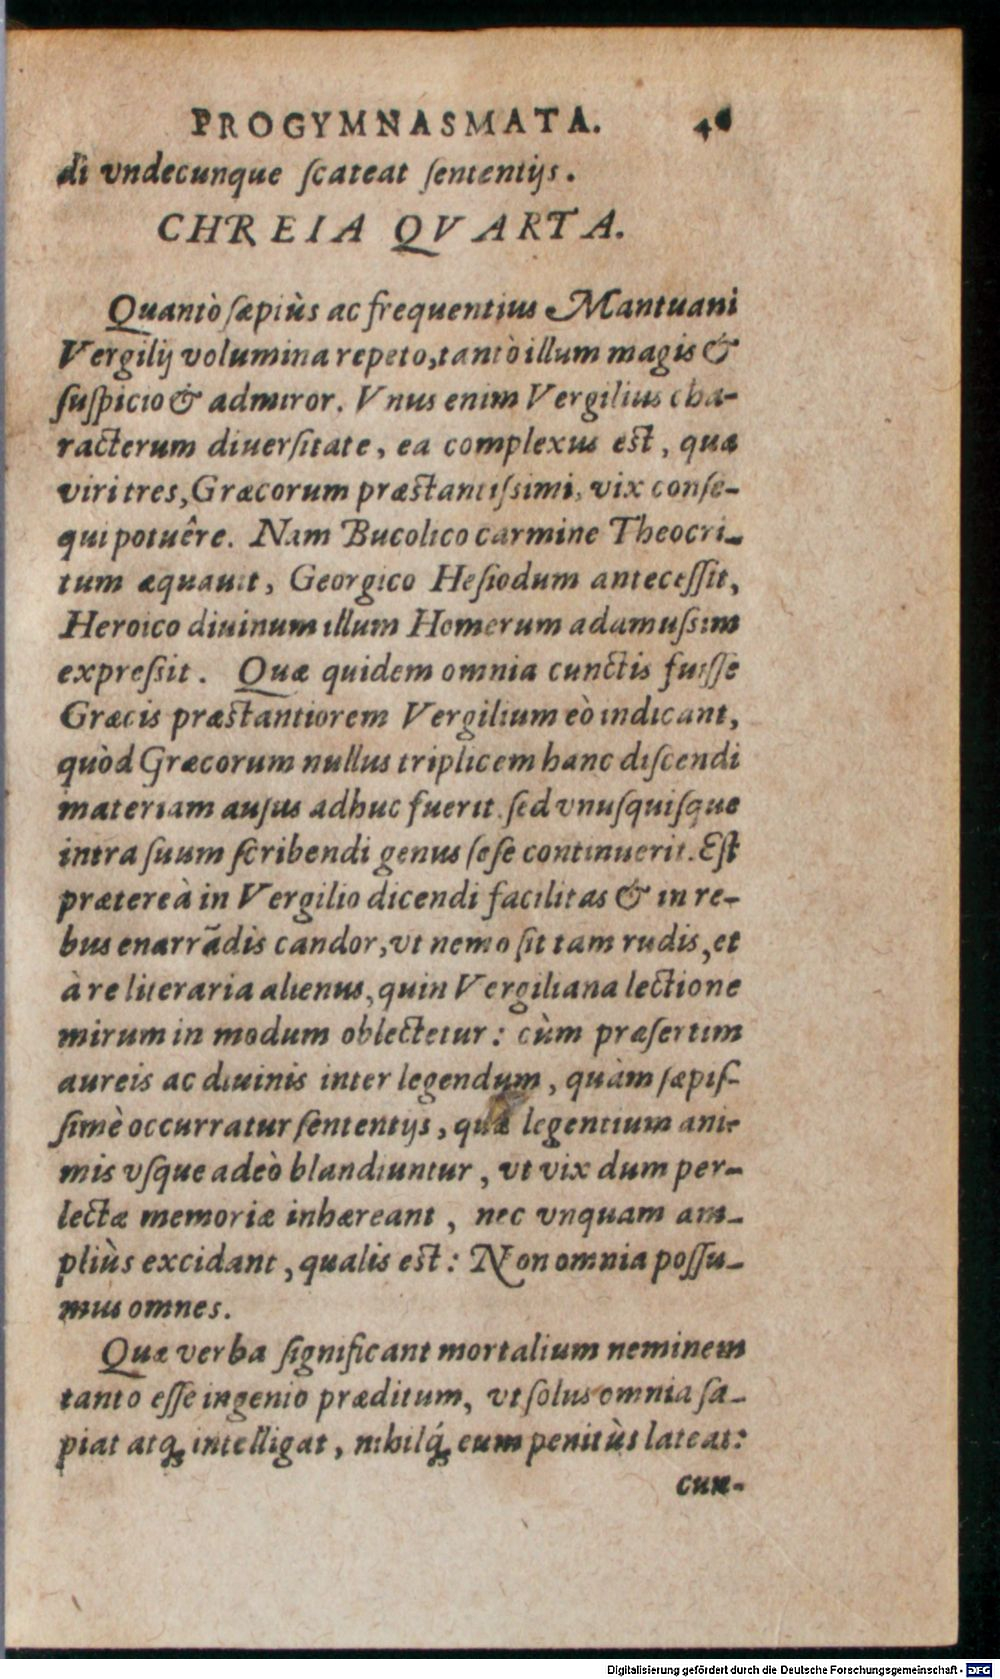 PROGYMNASMATA.
di vndecunque ſcateat ſententijs.
CHREIA QVARTA.
Quantò ſæpiùs ac frequentius Mantuani
Vergilij volumina repeto, tantò illum magis &
ſuſpicio & admiror. Vnus enim Vergilius cha-
racterum diuerſitate, ea complexus est, quæ
viri tres, Græcorum præstantiſsimi, vix conſe-
qui potuêre. Nam Bucolico carmine Theocri-
tum æquauit, Georgico Heſiodum anteceſſit,
Heroico diuinum illum Homerum adamuſsim
expreſsit. Quæ quidem omnia cunctis fuiſſe
Græcis præstantiorem Vergilium eò indicant,
quòd Græcorum nullus triplicem hanc diſcendi
materiam auſus adhuc fuerit. ſed vnuſquiſque
intra ſuum ſcribendi genus ſeſe continuerit. Eſt
prætereà in Vergilio dicendi facilitas & in re-
bus enarrãdis candor, vt nemo ſit tam rudis, et
à re literaria alienus, quin Vergiliana lectione
mirum in modum oblectetur: cùm præſertim
aureis ac diuinis inter legendum, quàm ſæpiſ-
ſimè occurratur ſententijs, quæ legentium ani-
mis vſque adeò blandiuntur, vt vix dum per-
lectæ memoriæ inhæreant, nec vnquam am-
pliùs excidant, qualis est: Non omnia poſſu-
mus omnes.
Quæ verba ſignificant mortalium neminem
tanto eſſe ingenio præditum, vt ſolus omnia ſa-
piat atq; intelligat, nihilq́; eum penitùs lateat:
cun-
Digitalisierung gefördert durch die Deutsche Forschungsgemeinschaft - DFG